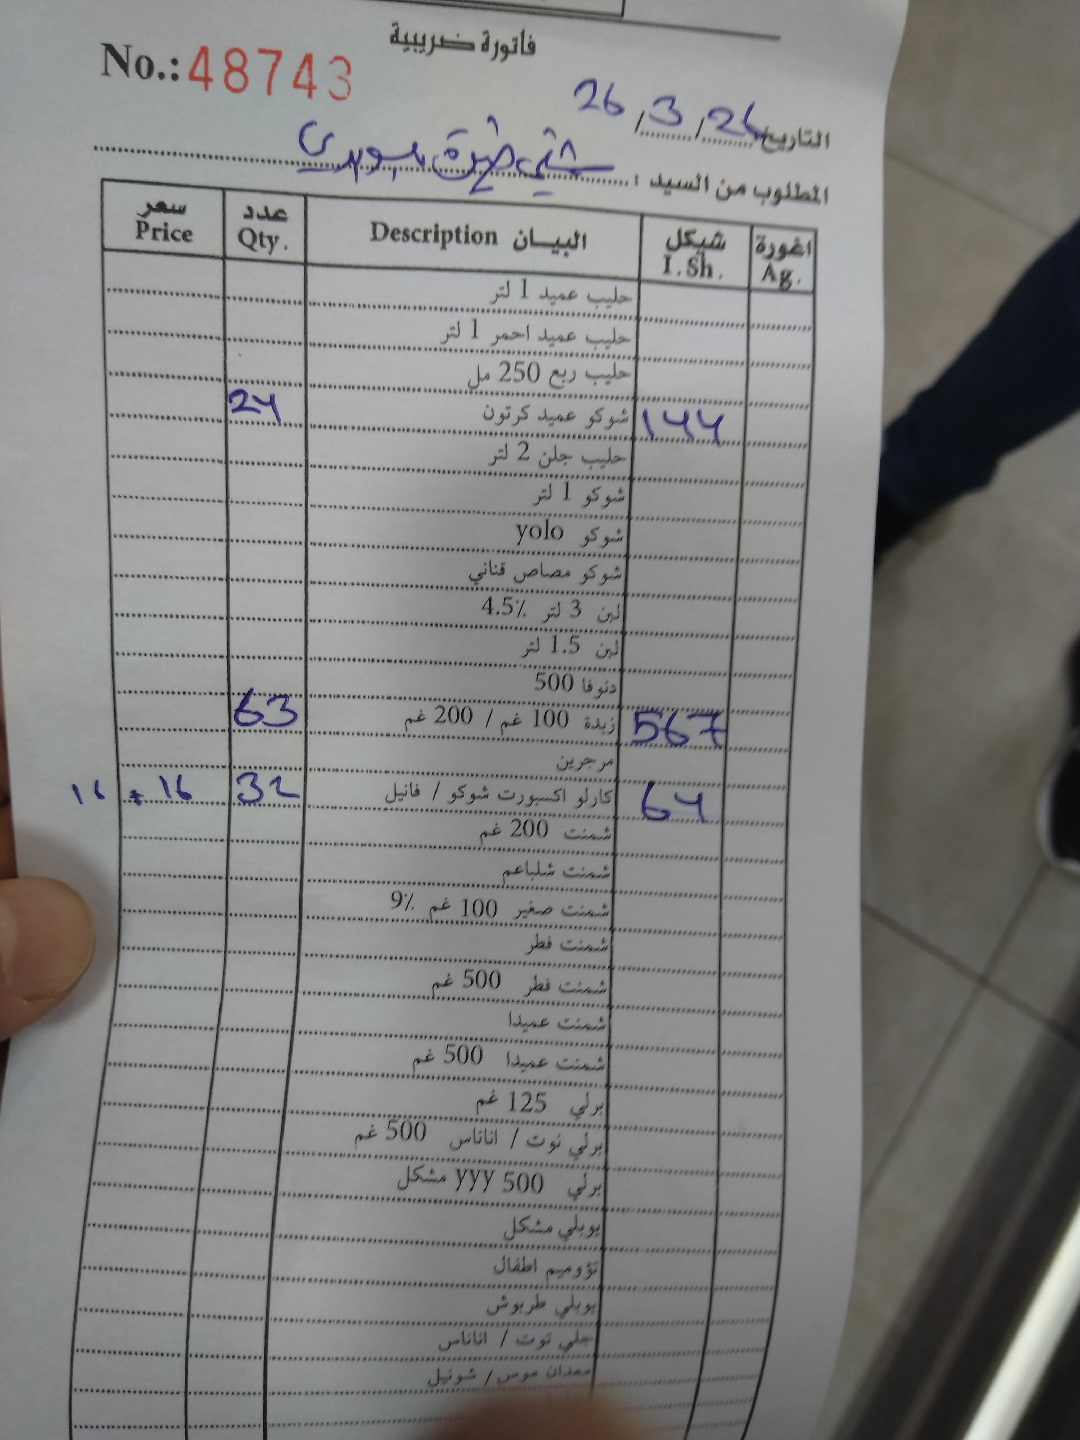 فاتورة ضريبية
No.: 48743
التاريخ: 26/3/26
المطلوب من السيد :
سعر عدد البيان Description شيكل اغورة
Price Qty. I.Sh. Ag.
حليب عميد 1 لتر
حليب عميد احمر 1 لتر
حليب ربع 250 مل
24 شوكو عميد كرتون 144
حليب جلن 2 لتر
شوكو 1 لتر
شوكو yolo
شوكو مصاص قناني
لبن 3 لتر 4.5٪
لبن 1.5 لتر
دنوفا 500
63 زبدة 100 غم / 200 غم 567
مرجرين
16 + 16 32 كارلو اكسبورت شوكو / فانيل 64
شمنت 200 غم
شمنت شلباعم
شمنت صغير 100 غم 9٪
شمنت فطر
شمنت فطر 500 غم
شمنت عميدا
شمنت عميدا 500 غم
برلي 125 غم
برلي توت / اناناس 500 غم
برلي 500 yyy مشكل
يوبلي مشكل
تؤوميم اطفال
يوبلي طربوش
جلي توت / اناناس
معدان موس / شونيل